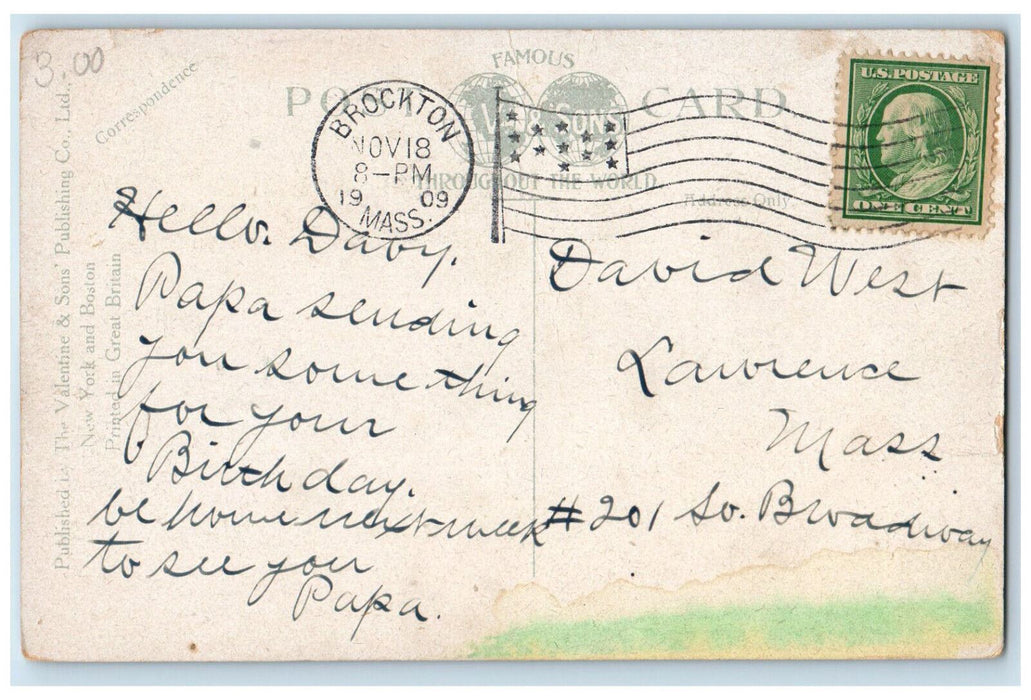 3.00
FAMOUS
POST CARD
V & SONS
THROUGHOUT THE WORLD
Correspondence
Address Only.
BROCKTON
NOV 18
8-PM
19 09
MASS.
U.S. POSTAGE
ONE CENT
Published by The Valentine & Sons' Publishing Co., Ltd.,
New York and Boston
Printed in Great Britain
Hello. Davy.
Papa sending
you something
for your
Birthday.
be home next week
to see you
Papa.
David West
Lawrence
Mass
#201 So. Broadway